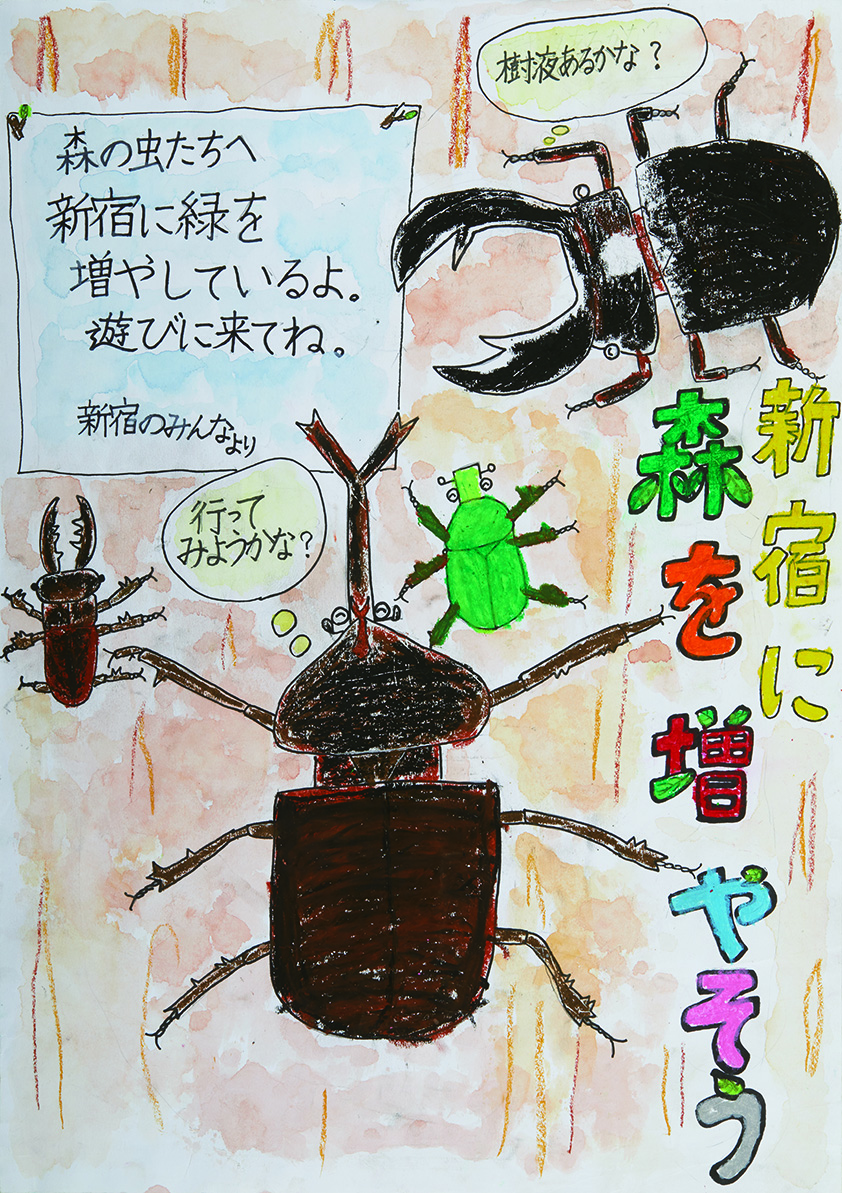 樹液あるかな？
森の虫たちへ
新宿に緑を
増やしているよ。
遊びに来てね。
新宿のみんなより
行って
みようかな？
新宿に
森を増やそう